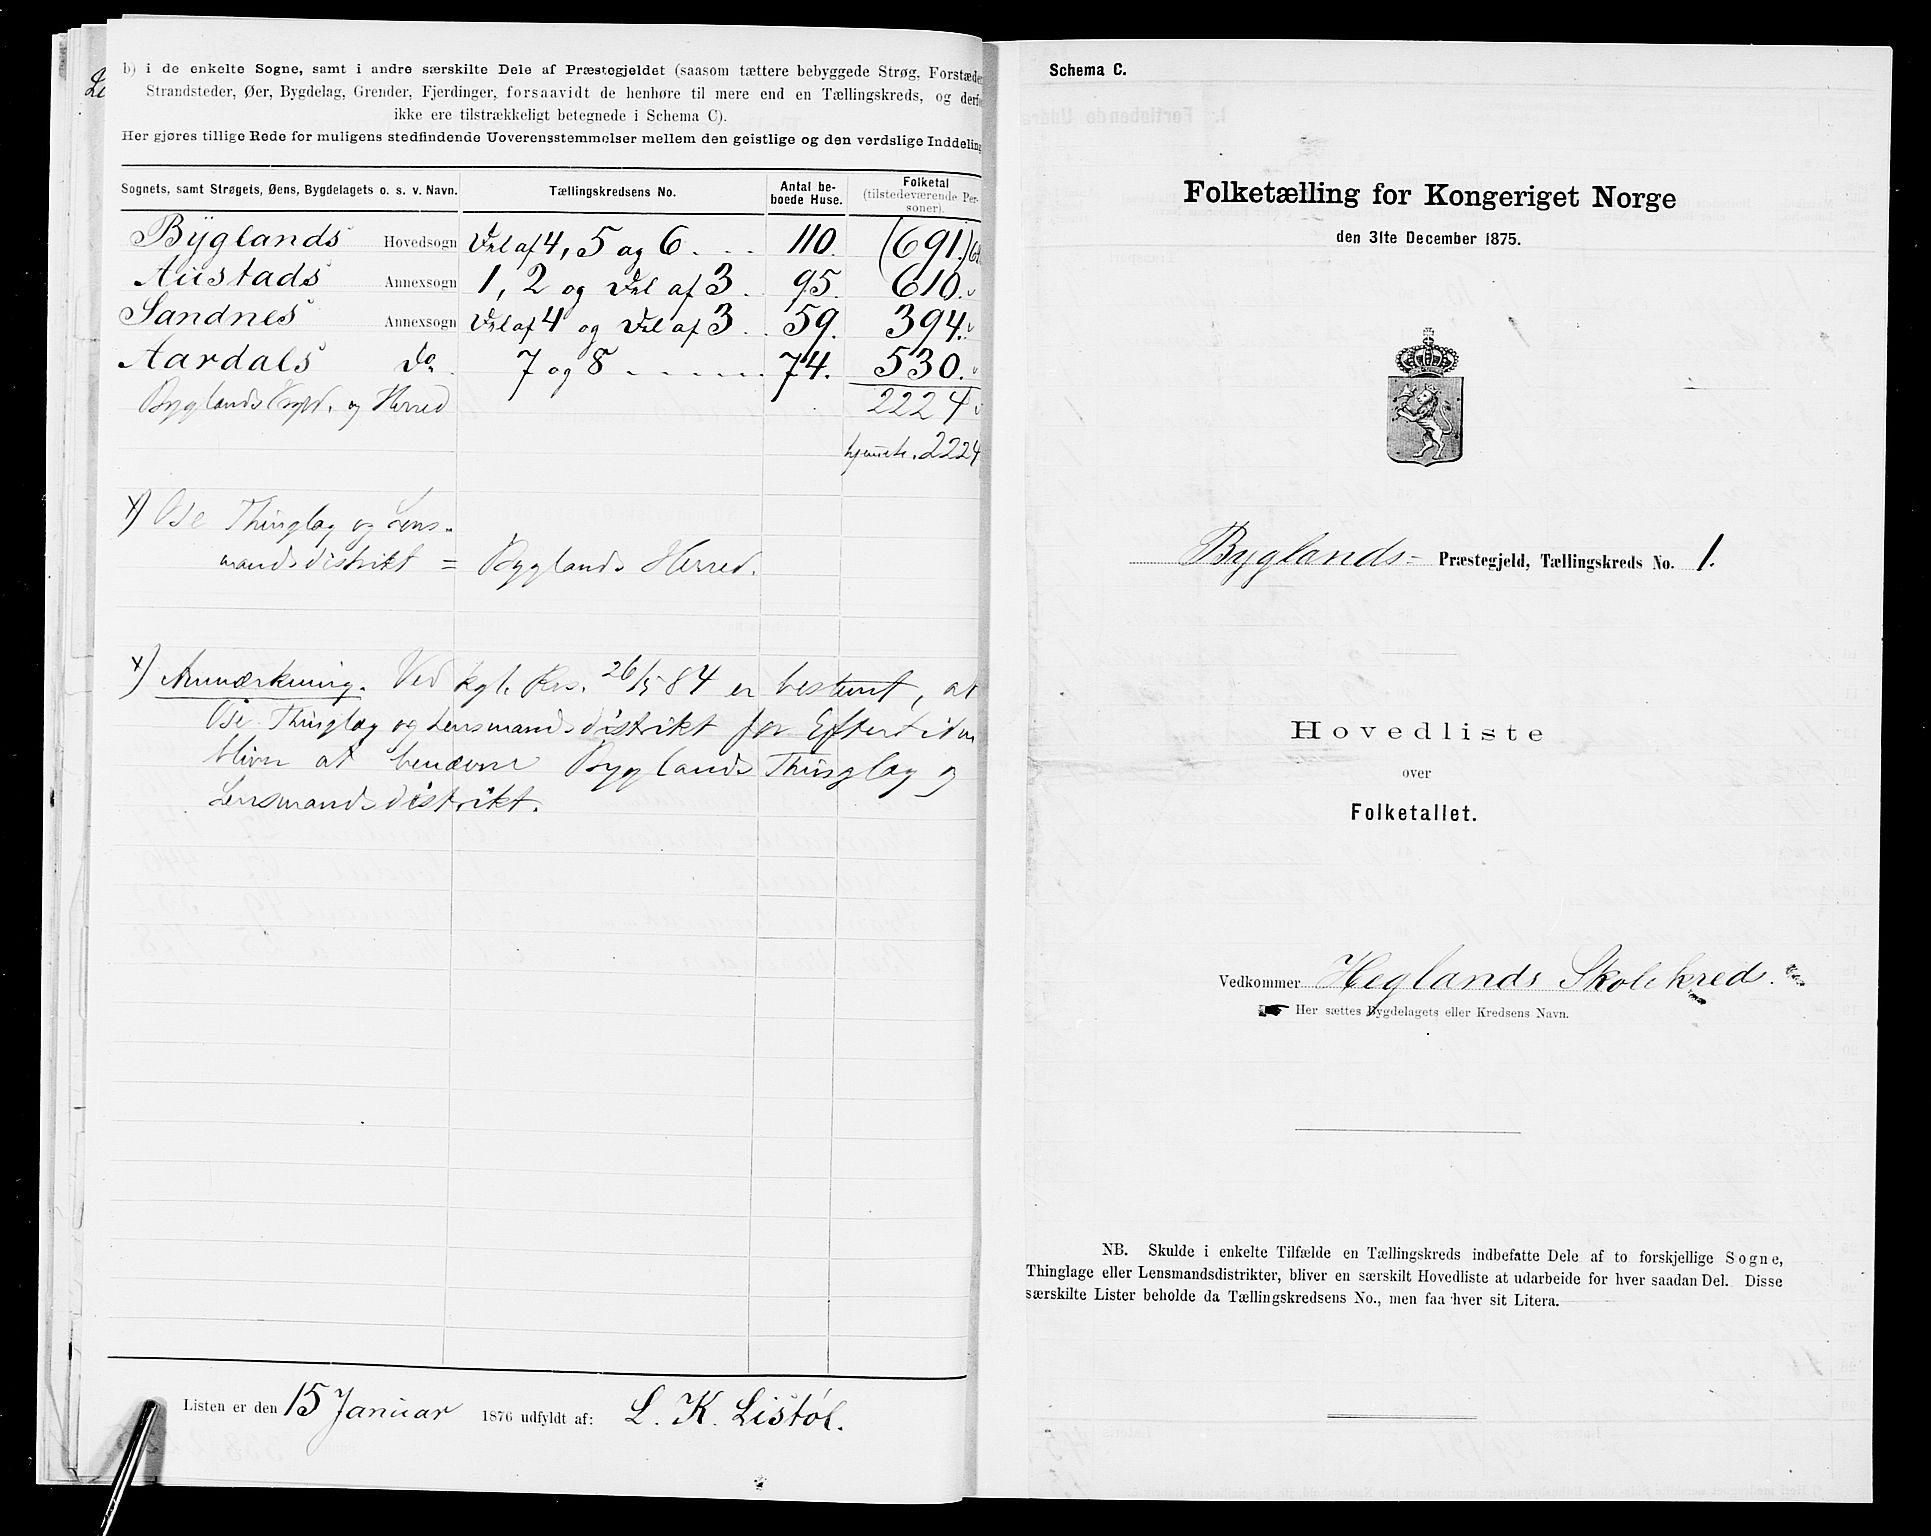 b) i de enkelte Sogne, samt i andre særskilte Dele af Præstegjeldet (saasom tættere bebyggede Strøg, Forstæder
Strandsteder, Øer, Bygdelag, Grender, Fjerdinger, forsaavidt de henhøre til mere end en Tællingskreds, og derfo
ikke ere tilstrækkeligt betegnede i Schema C).
Her gjøres tillige Rede for muligens stedfindende Uoverensstemmelser mellem den geistlige og den verdslige Inddeling
Sognets, samt Strøgets, Øens, Bygdelagets o. s. v. Navn. Tællingskredsens No. Antal be-boede Huse. Folketal (tilstedeværende Per-soner).
Byglands Hovedsogn Del af 4, 5 og 6 . . . 110. (691.)
Austads Annexsogn 1, 2 og Del af 3 . 95. 610.
Sandnes Annexsogn Del af 4 og Del af 3 . 59. 394.
Aardals Do 7 og 8 . . . . . . 74. 530.
Byglands Prgld. og Herred 2224
hjemmeh. 2224
x) Ose Thinglag og Lens-
mandsdistrikt = Byglands Herred.
x) Anmærkning. Ved kgl. Res. 26/5 84 er bestemt, at
Ose Thinglag og Lensmandsdistrikt for Eftertiden
bliver at benævne Byglands Thinglag og
Lensmandsdistrikt.
Listen er den 15 Januar 1876 udfyldt af: L. K. Listøl.
Schema C.
Folketælling for Kongeriget Norge
den 31te December 1875.
Byglands- Præstegjeld, Tællingskreds No. 1.
Hovedliste
over
Folketallet.
Vedkommer Heglands Skolekreds.
Her sættes Bygdelagets eller Kredsens Navn.
NB. Skulde i enkelte Tilfælde en Tællingskreds indbefatte Dele af to forskjellige Sogne,
Thinglage eller Lensmandsdistrikter, bliver en særskilt Hovedliste at udarbeide for hver saadan Del. Disse
særskilte Lister beholde da Tællingskredsens No., men faa hver sit Litera.